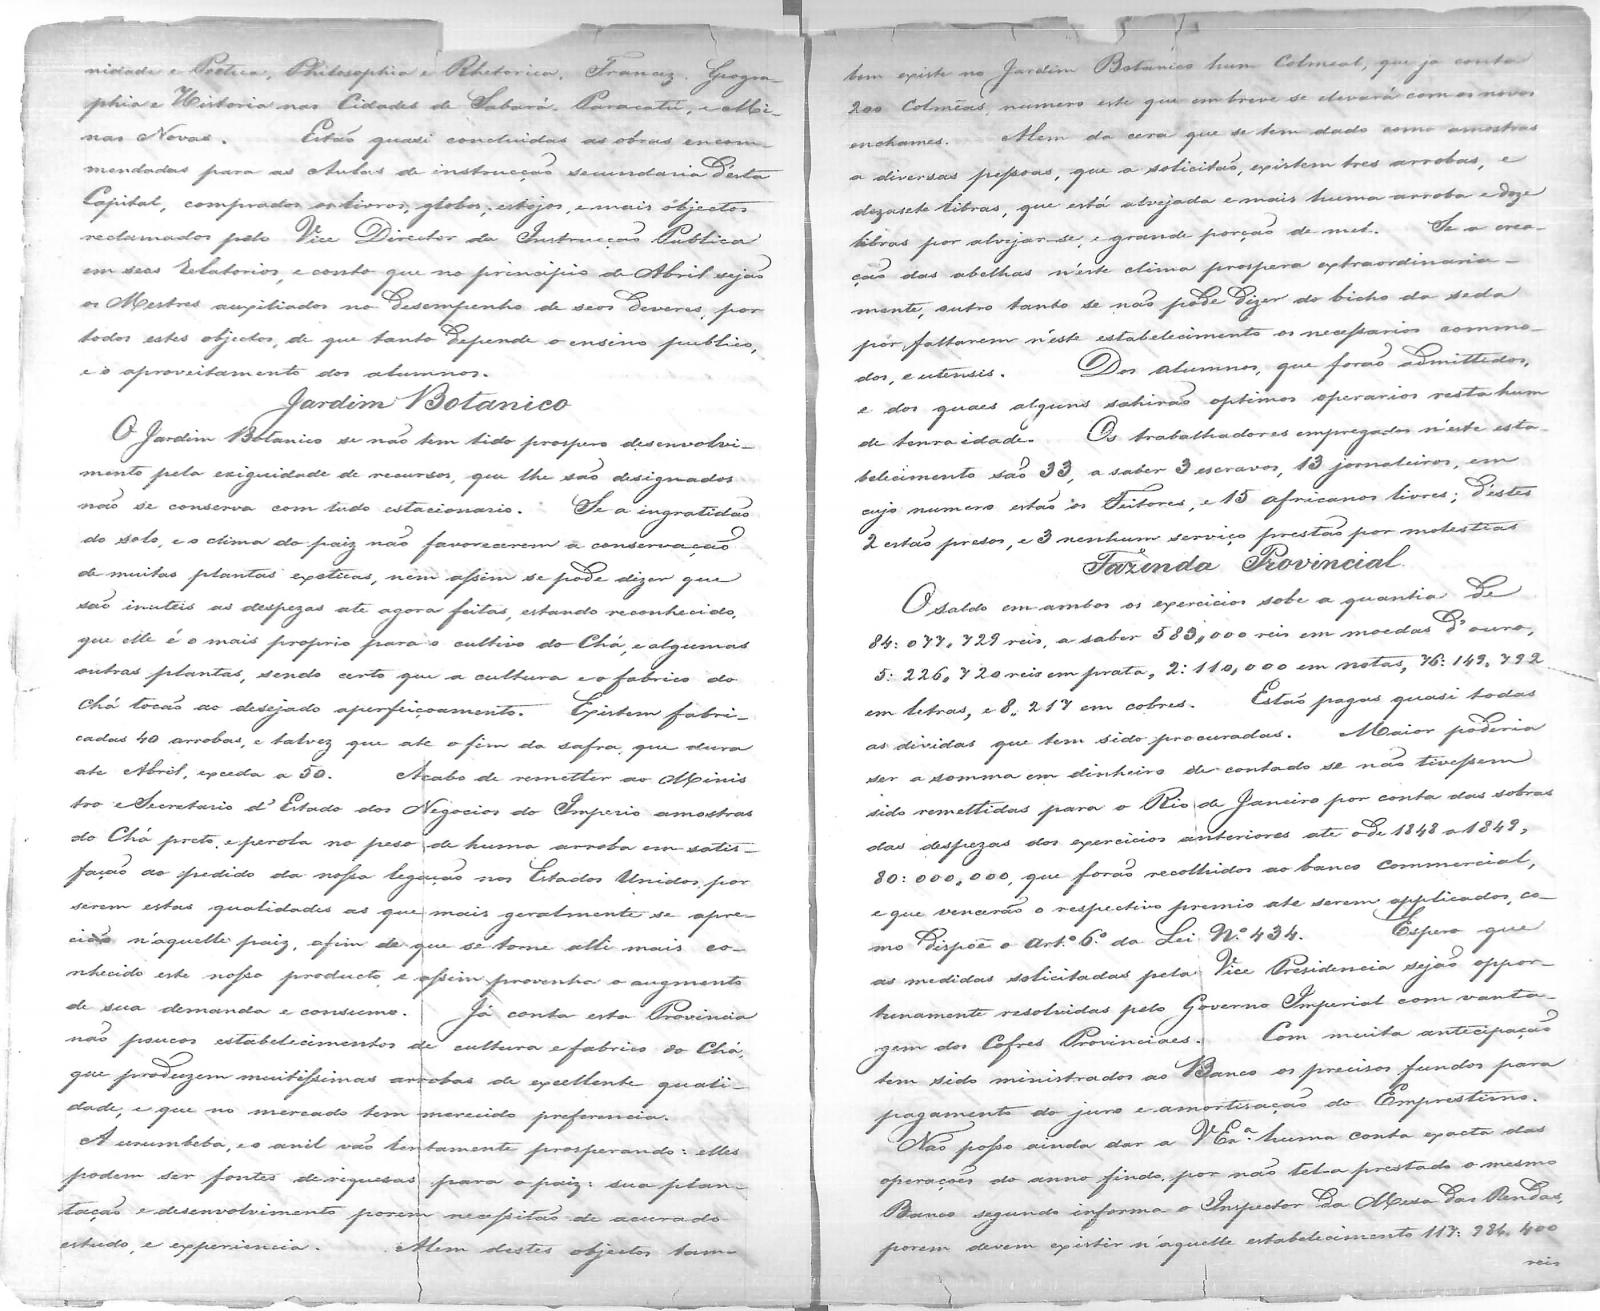 nidade e Poetica, Philosophia e Rhetorica, Francez, Geogra-
phia e Historia nas Cidades de Sabará, Paracatú, e Mi-
nas Novas. Estão quasi concluidas as obras encom-
mendadas para as Aulas de instrucção secundaria d'esta
Capital, comprados os livros, globos, estojos, e mais objectos
reclamados pelo Vice Director da Instrucção Publica
em seos relatorios, e conto que no principio de Abril sejão
os Mestres auxiliados no desempenho de seos deveres, por
todos estes objectos, de que tanto depende o ensino publico,
e o aproveitamento dos alumnos.
Jardim Botanico
O Jardim Botanico se não tem tido prospero desenvolvi-
mento pela exiguidade de recursos, que lhe são designados
não se conserva com tudo estacionario. Se a ingratidão
do solo, e o clima do paiz não favorecerem a conservação
de muitas plantas exoticas, nem assim se pode dizer que
são inuteis as despezas ate agora feitas, estando reconhecido,
que elle é o mais proprio para o cultivo do Chá, e algumas
outras plantas, sendo certo que a cultura e o fabrico do
Chá tocão ao desejado aperfeiçoamento. Existem fabri-
cadas 40 arrobas, e talvez que ate o fim da safra, que dura
ate Abril, exceda a 50. Acabo de remetter ao Minis
tro e Secretario d'Estado dos Negocios do Imperio amostras
do Chá preto, e perola no peso de huma arroba em satis-
fação ao pedido da nossa legação nos Estados Unidos, por
serem estas qualidades as que mais geralmente se apre-
cião n'aquelle paiz, afim de que se torne alli mais co-
nhecido este nosso producto, e assim provenha o augmento
de sua demanda e consumo. Já conta esta Provincia
não poucos estabelecimentos de cultura e fabrico do Chá,
que produzem muitissimas arrobas de excellente quali-
dade, e que no mercado tem merecido preferencia.
A urumbeba, e o anil vão lentamente prosperando: elles
podem ser fontes de riquesas para o paiz: sua plan-
tação e desenvolvimento porem necessitão de acurado
estudo, e experiencia. Alem destes objectos tam-
bem existe no Jardim Botanico hum Colmeal, que ja conta
200 Colmêas, numero este que em breve se elevará com os novos
enchames. Alem da cera que se tem dado como amostras
a diversas pessoas, que a solicitão, existem tres arrobas, e
dezasete libras, que está alvejada e mais huma arroba e doze
libras por alvejar-se, e grande porção de mel. Se a crea-
ção das abelhas n'este clima prospera extraordinaria-
mente, outro tanto se não póde dizer do bicho da seda
pór faltarem n'este estabelecimento os necessarios commo-
dos, e utensis. Dos alumnos, que forão admittidos,
e dos quaes alguns sahirão optimos operarios resta hum
de tenra idade. Os trabalhadores empregados n'este esta-
belecimento são 33, a saber 3 escravos, 13 jornaleiros, em
cujo numero estão os Feitores, e 15 africanos livres; d'estes
2 estão presos, e 3 nenhum serviço prestão por molestias
Fazenda Provincial
O saldo em ambos os exercicios sobe a quantia de
84:077,729 reis, a saber 583,000 reis em moedas d'ouro,
5:226,720 reis em prata, 2:110,000 em notas, 76:149,792
em letras, e 8,,217 em cobres. Estão pagas quasi todas
as dividas que tem sido procuradas. Maior poderia
ser a somma em dinheiro de contado se não tivessem
sido remettidas para o Rio de Janeiro por conta das sobras
das despezas dos exercicios anteriores ate o de 1848 a 1849,
80:000,000, que forão recolhidos ao banco commercial,
e que vencerão o respectivo premio ate serem applicados, co-
mo dispõe o Art.º 6.º da Lei N.º 434. Espero que
as medidas solicitadas pela Vice Presidencia sejão oppor-
tunamente resolvidas pelo Governo Imperial com vanta-
gem dos Cofres Provinciaes. Com muita antecipação
tem sido ministrados ao Banco os precisos fundos para
pagamento do juro e amortisação do Emprestimo.
Não posso ainda dar a VExª huma conta exacta das
operações do anno findo, por não tel-a prestado o mesmo
Banco segundo informa o Inspector da Mesa das Rendas,
porem devem existir n'aquelle estabelecimento 117:984,400
reis